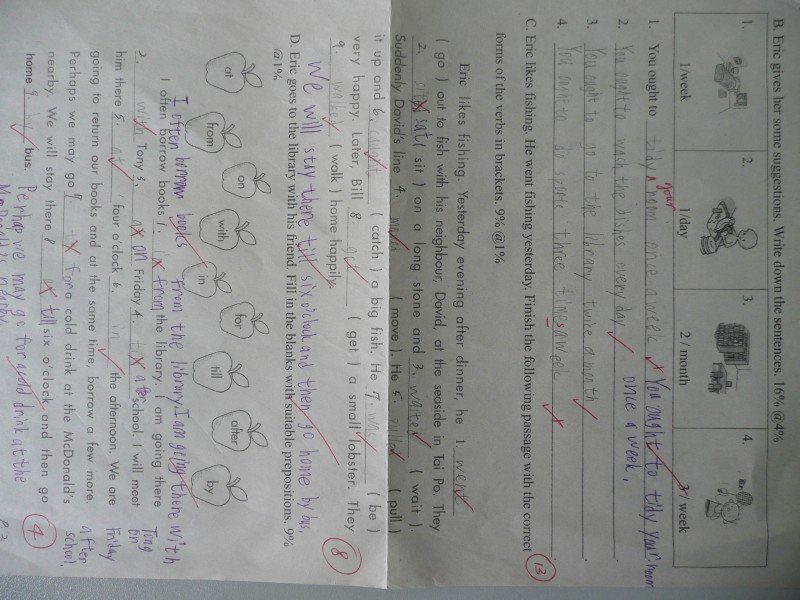 B. Eric gives her some suggestions. Write down the sentences. 16% @4%
1. 2. 3. 4.
1/week 1/day 2/month 3/week
1. You ought to tidy your room once a week You ought to tidy your room
once a week.
2. You ought to wash the dishes every day
3. You ought to go to the library twice a month
4. You ought to do sports three times a week
13
C. Eric likes fishing. He went fishing yesterday. Finish the following passage with the correct
forms of the verbs in brackets. 9% @1%
Eric likes fishing. Yesterday evening after dinner, he 1. went
( go ) out to fish with his neighbour, David, at the seaside in Tai Po. They
2. sat ( sit ) on a long stone and 3. waited ( wait ).
Suddenly David's line 4. moved ( move ). He 5. pulled ( pull )
it up and 6. ( catch ) a big fish. He 7. was ( be )
very happy. Later, Bill 8. got ( get ) a small lobster. They
9. walked ( walk ) home happily.
8
We will stay there till six o'clock and then go home by bus.
D. Eric goes to the library with his friend. Fill in the blanks with suitable prepositions. 9%
@1%
at from on with in for till after by
I often borrow books from the library. I am going there with
Tony on Friday after school.
I often borrow books 1. from the library. I am going there
2. with Tony 3. on Friday 4. after school. I will meet
him there 5. at four o'clock 6. in the afternoon. We are
going to return our books and at the same time, borrow a few more.
Perhaps we may go 7. for a cold drink at the McDonald's
nearby. We will stay there 8. till six o'clock and then go
home 9. by bus.
4
Perhaps we may go for a cold drink at the
McDonald's nearby.
P.2